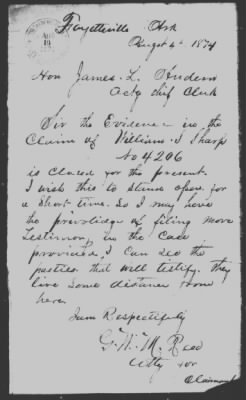 Fayetteville Ark
August 4th 1874
Hon James. L. Andem
Actg chief Clerk
Sir the Evidence in the
Claim of William. J Sharp
No 4206
is Closed for the present.
I wish this to stand open for
a short time. So I may have
the priviledge of filing more
Testimony, in the case
provided, I can see the
parties that will testify. they
live some distance from
here.
I am Respectfully
G. W. M. Reed
Atty for
Claimant